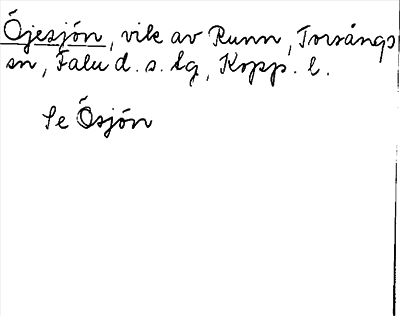 Öjesjön, vik av Runn, Torsångs
sn, Falu d. s. lg, Kopp. l.
Se Ösjön